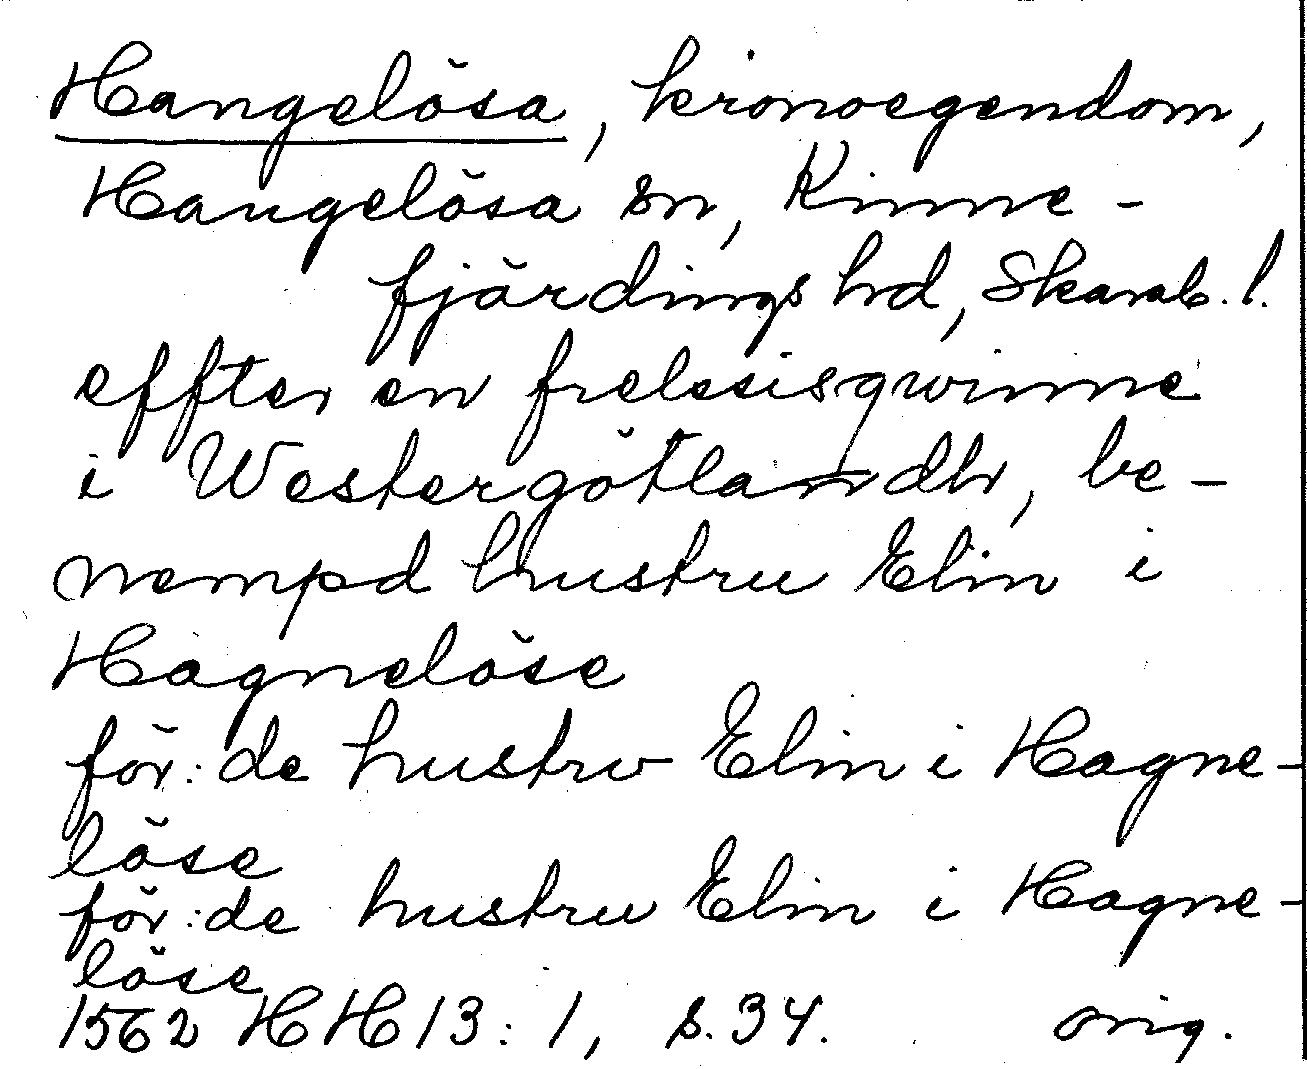 Hangelösa, kronoegendom,
Hangelösa sn, Kinne-
fjärdings hd, Skarab. l.
effter en frelssisqwinne
i Westergötlandh, be-
nempd hustru Elin i
Hagnelöse
för:de hustrv Elin i Hagne-
löse
för:de hustru Elin i Hagne-
löse
1562 HH 13:1, s. 34. orig.